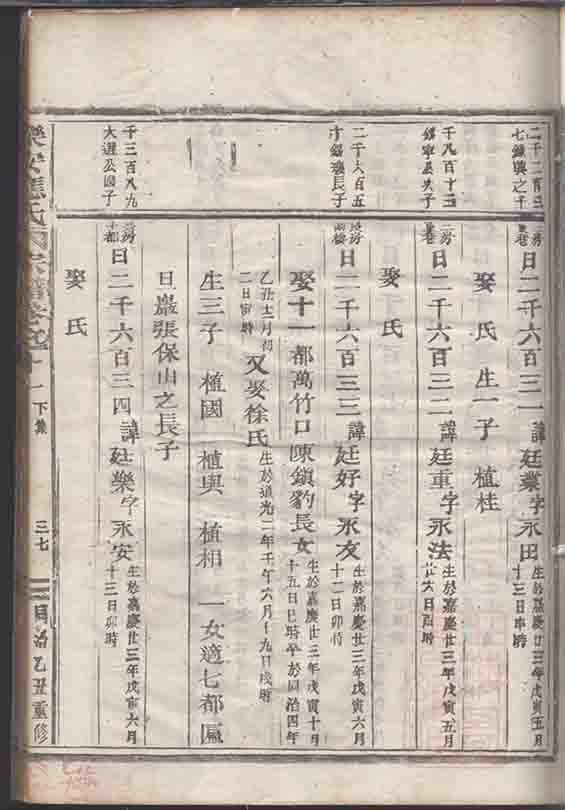 二千二百三
七鎮興之子
二房
日二千六百三一 諱廷業 字永田 生於嘉慶廿三年戊寅五月
十三日申時
娶氏 生一子 植桂
千九百十三
二房
日二千六百三二 諱廷重 字永法 生於嘉慶廿三年戊寅五月
廿六日酉時
娶氏
二千六百五
長子
日二千六百三三 諱廷好 字永友 生於嘉慶廿三年戊寅六月
十二日卯時
娶十一都萬竹口陳鎮豹長女 生於嘉慶廿三年戊寅十月
十五日巳時卒於同治四年
乙丑十二月初
二日寅時 又娶徐氏 生於道光二年壬午六月十九日戌時
生三子 植國 植興 植相 一女適七都匾
旦嚴張保山之長子
千三百八九
大進公國子
二房
日二千六百三四 諱廷樂 字永安 生於嘉慶廿三年戊寅六月
十三日卯時
娶氏
樂安 氏 宗譜卷之十一 下集 三七 同治乙丑重修